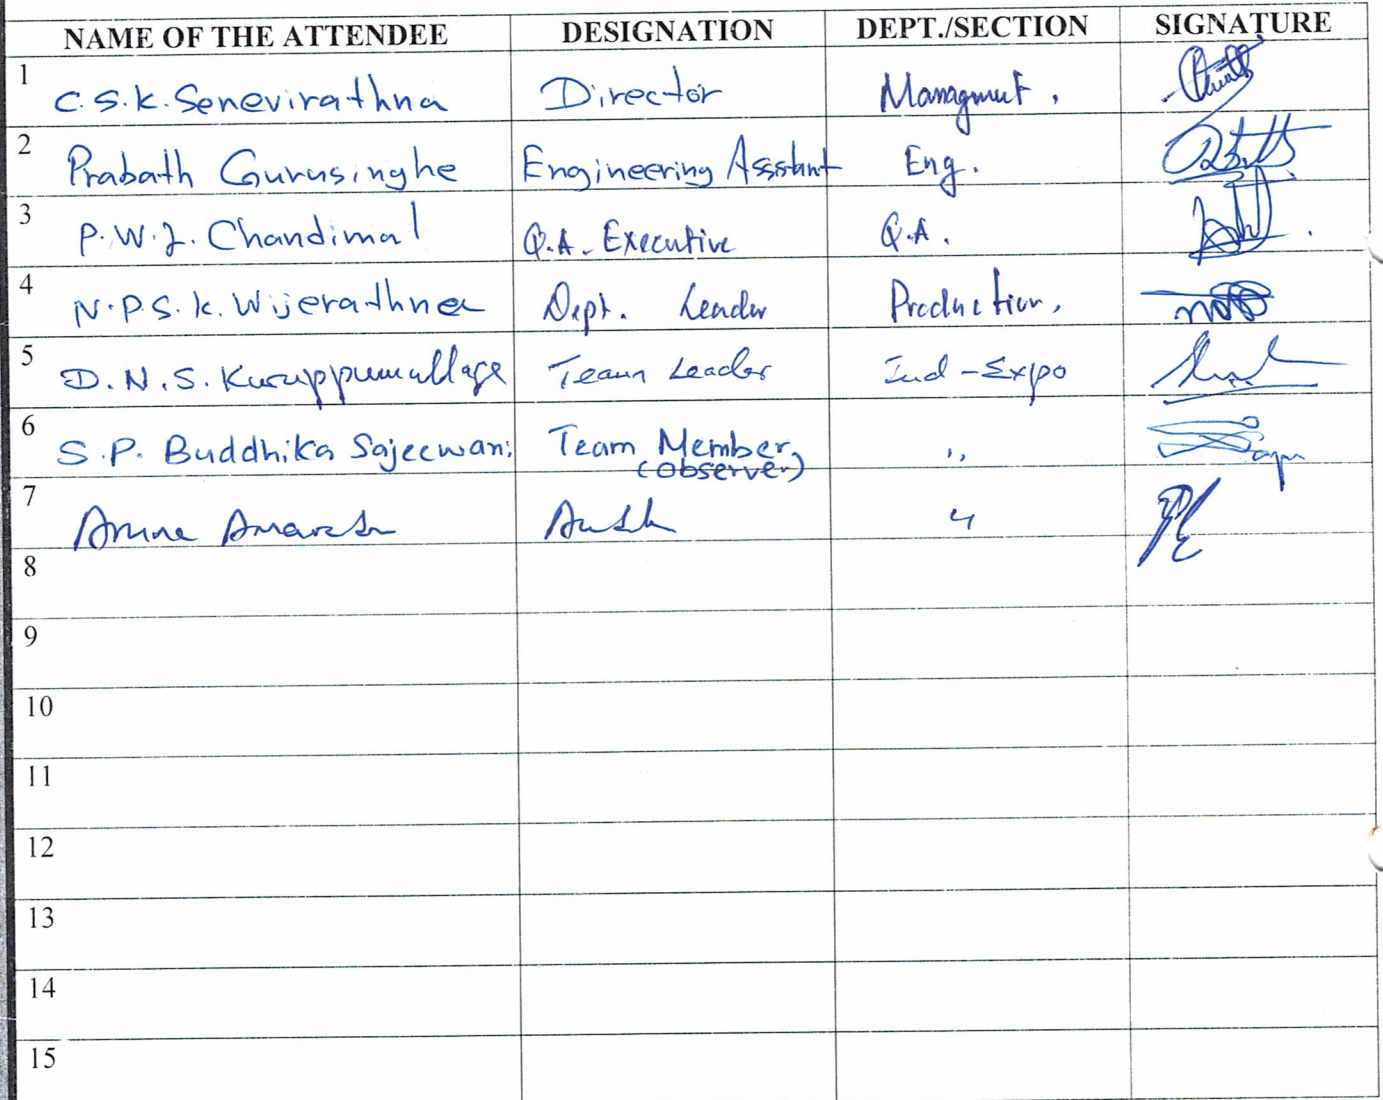 NAME OF THE ATTENDEE DESIGNATION DEPT./SECTION SIGNATURE
1 C.S.K. Senevirathna Director Managment.
2 Prabath Gurusinghe Engineering Assistant Eng.
3 P.W.J. Chandimal Q.A. Executive Q.A.
4 N.P.S.K. Wijerathna Dept. Leader Production,
5 D.N.S. Kuruppumullage Team Leader Ind-Expo
6 S.P. Buddhika Sajeewani Team Member, "
(Observer)
7 "
8
9
10
11
12
13
14
15